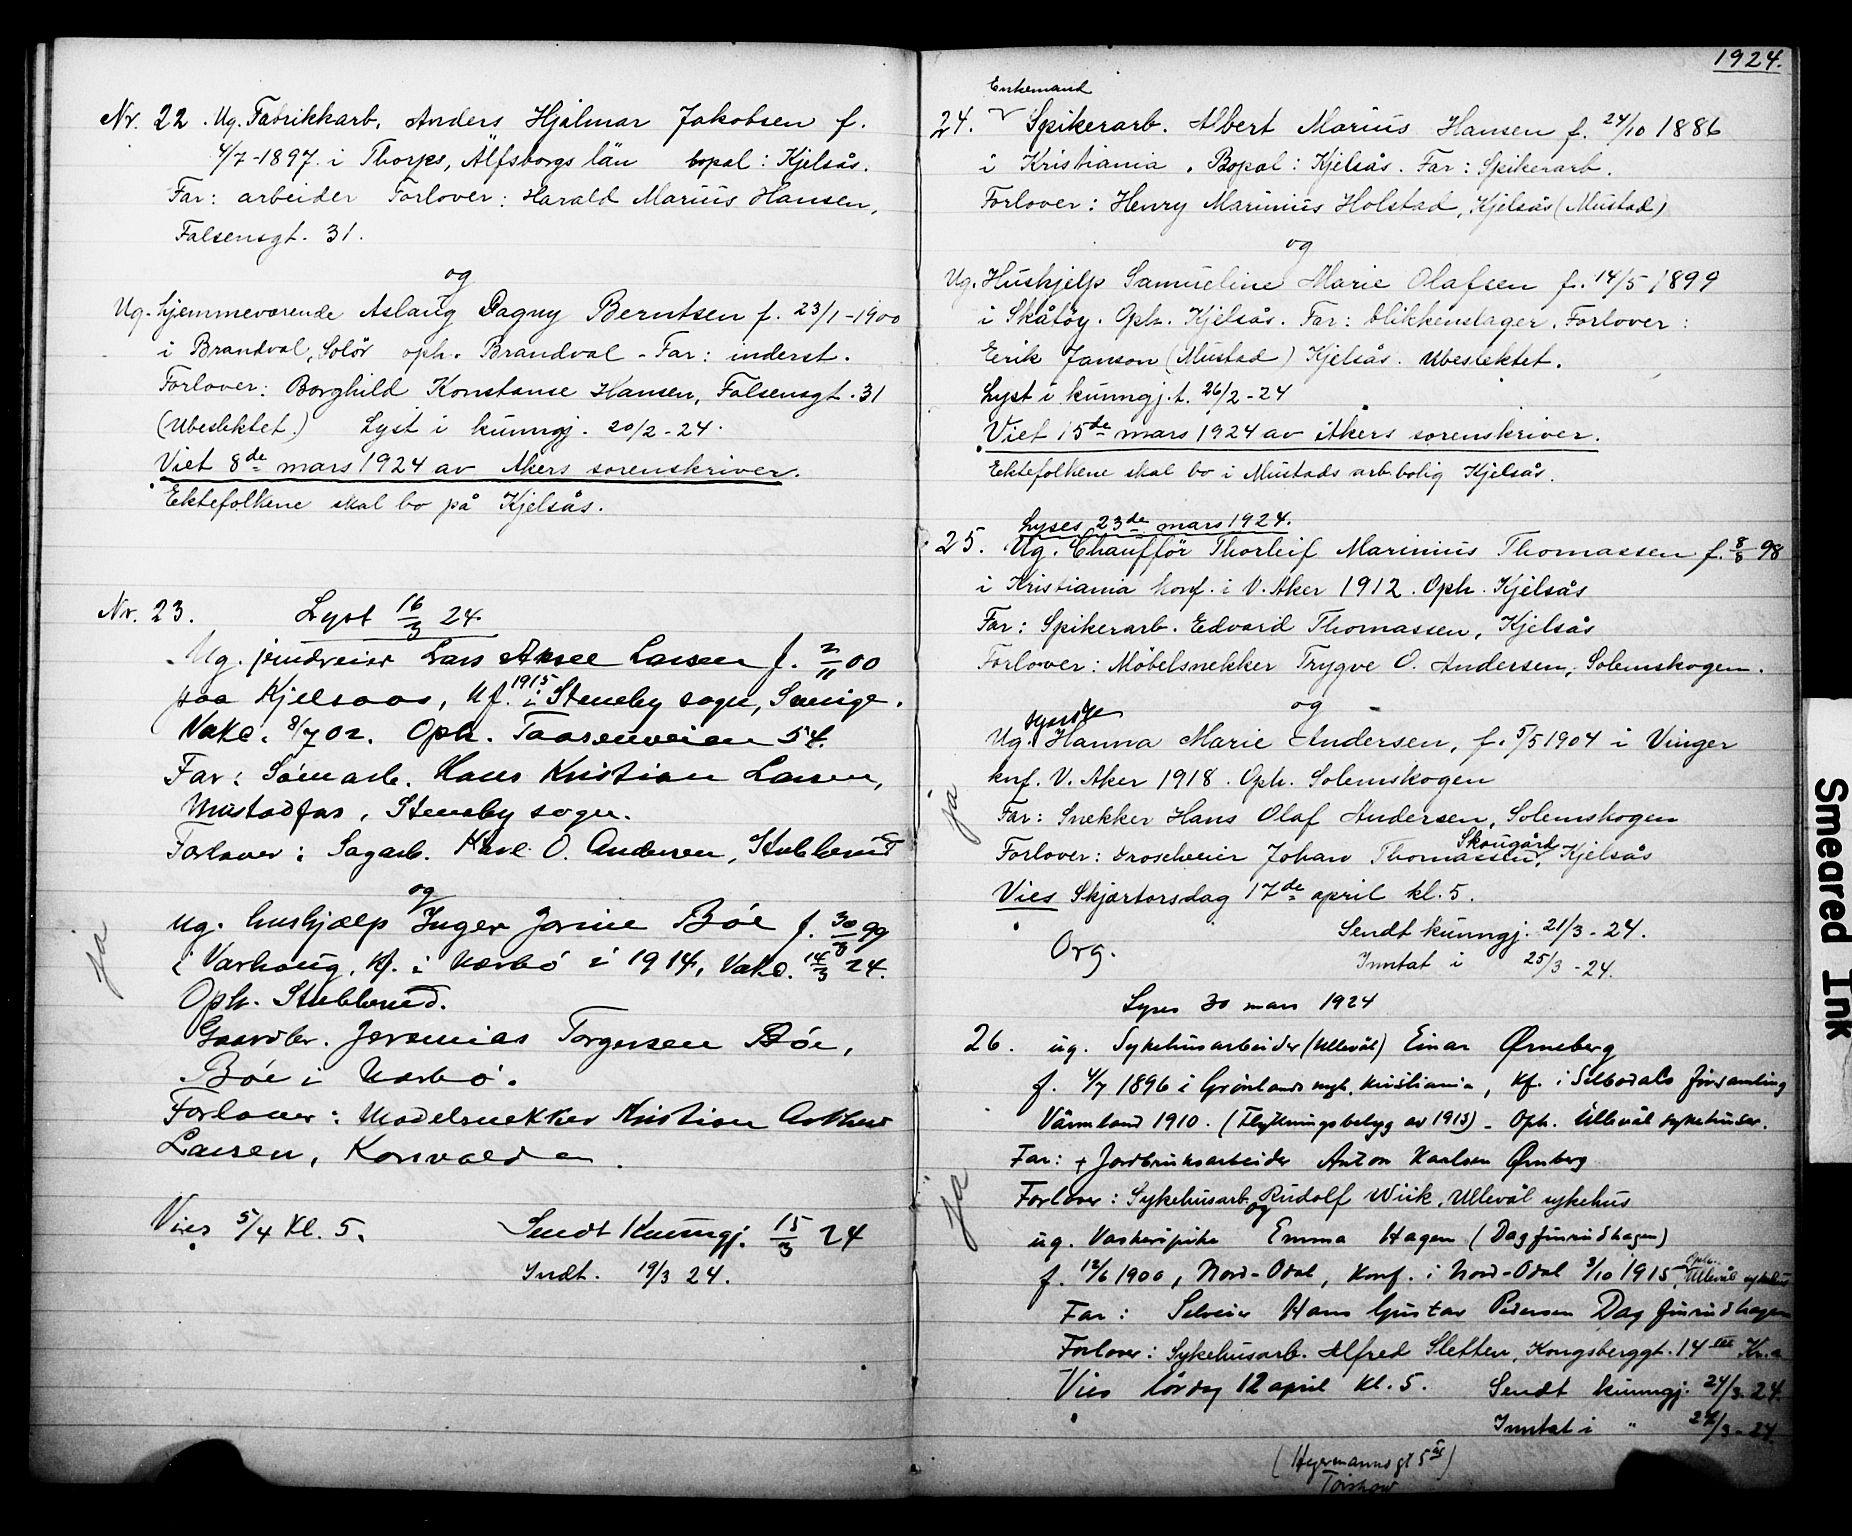 Nr. 22. Ug. Fabrikkarb. Anders Hjalmar Jakobsen f.
4/7-1897. i Thorps, Älfsborgs län bopal: Kjelsås.
Far: arbeider Forlover: Harald Marius Hansen,
Falsensgt. 31.
og
Ug. hjemmeværende Aslaug Dagny Berntsen f. 23/1-1900
i Brandval, Solör oph. Brandval - Far: inderst.
Forlover: Borghild Konstanse Hansen, Falsensgt. 31
(Ubeslektet.) Lyst i kunngj. 20/2-24.
Viet 8de mars 1924 av Akers sorenskriver.
Ektefolkene skal bo på Kjelsås.
Nr. 23. Lyst 16/3 24.
Ug. Lars Aksel Larsen f. 2/11 00
paa Kjelsaas, kf. 1915 i Steneby sogn, Sverige.
Vakc. 8/7 02. Oph. Taasenveien 54.
Far: Sömarb. Hans Kristian Larsen,
Mustadfos, Steneby sogn.
Forlover: Sagarb. Karl O. Andersen, Stubberud
og
ja
Ug. hushjælp Inger Jorine Böe f. 30/8 99
i Varhaug, kf. i Nærbö i 1914, Vakc. 14/3 24.
Oph. Stubberud.
Gaardbr. Jeremias Torgersen Böe,
Böe i Nærbö.
Forlover: Modelsnekker Kristian Arthur
Larsen, Korsvold
Vies 5/4 kl. 5. Sendt Kunngj. 15/3 24
Indt. 19/3 24.
1924.
Enkemand
24. Spikerarb. Albert Marius Hansen f. 24/10 1886
i Kristiania. Bopal: Kjelsås. Far: Spikerarb.
Forlover: Henry Marinius Holstad, Kjelsås (Mustad)
og
Ug. Hushjelp Samueline Marie Olafsen f. 14/5 1899
i Skåtöy. Oph. Kjelsås. Far: blikkenslager. Forlover:
Eerik Janson (Mustad) Kjelsås. Ubeslektet.
Lyst i kunngj.t. 26/2-24
Viet 15de mars 1924 av Akers sorenskriver.
Ektefolkene skal bo i Mustads arb.bolig Kjelsås.
Lyses 23de mars 1924.
25. Ug. Chaufför Thorleif Marinius Thomassen f. 8/8 98
i Kristiania konf. i V. Aker 1912. Oph. Kjelsås
Far: Spikerarb. Edvard Thomassen, Kjelsås
Forlover: Möbelsnekker Trygve O. Andersen, Solemskogen.
og
syerske
Ug. Hanna Marie Andersen, f. 5/5 1904 i Vinger
knf. V. Aker 1918. Oph. Solemskogen
ja
Far: Snekker Hans Olaf Andersen, Solemskogen
Skougård
Forlover: droscheeier Johan Thomassen, Kjelsås
Vies Skjærtorsdag 17de april kl. 5.
Sendt kunngj. 21/3-24.
Org.
Inntat i 25/3-24.
Lyses 30 mars 1924
26. ug. Sykehusarbeider (Ullevål) Einar Ørneberg
f. 4/7 1896 i Grönlands mgh. Kristiania, kf. i Silbodals församling
Värmland 1910. (Flyttningsbetyg av 1913) - Oph. Ullevål sykehuser.
Far: + Jordbruksarbeider Anton Karlsen Ørnberg
Ja
Forlover: Sykehusarb. Rudolf Wiik, Ullevål sykehus
og
ug. Vaskeripike Emma Hagen (Dagfinrudhagen)
f. 12/6 1900, Nord-Odal, konf. i Nord-Odal 3/10 1915, Oph. Ullevål sykehus
Far: Selveier Hans Gustav Pedersen Dagfinrudhagen
Forlover: Sykehusarb. Alfred Sletten, Kongsberggt. 14 Kr.a
Vies lördag 12 april kl. 5. Sendt kunngj. 24/3-24.
Inntat i " 24/3-24.
(Hegermannsgt 5)
Torshov
Smeared Ink